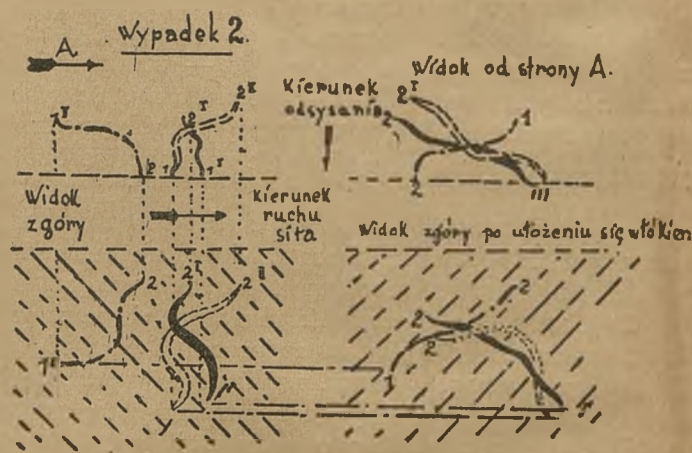 Wypadek 2.
A.
Widok od strony A.
Kierunek
odsysania
1
2
2
1
2
2
1
1
III
Widok
z góry
Kierunek
ruchu
sita
Widok z góry po ułożeniu się włókien
2
2
2
II
2
2
2
1